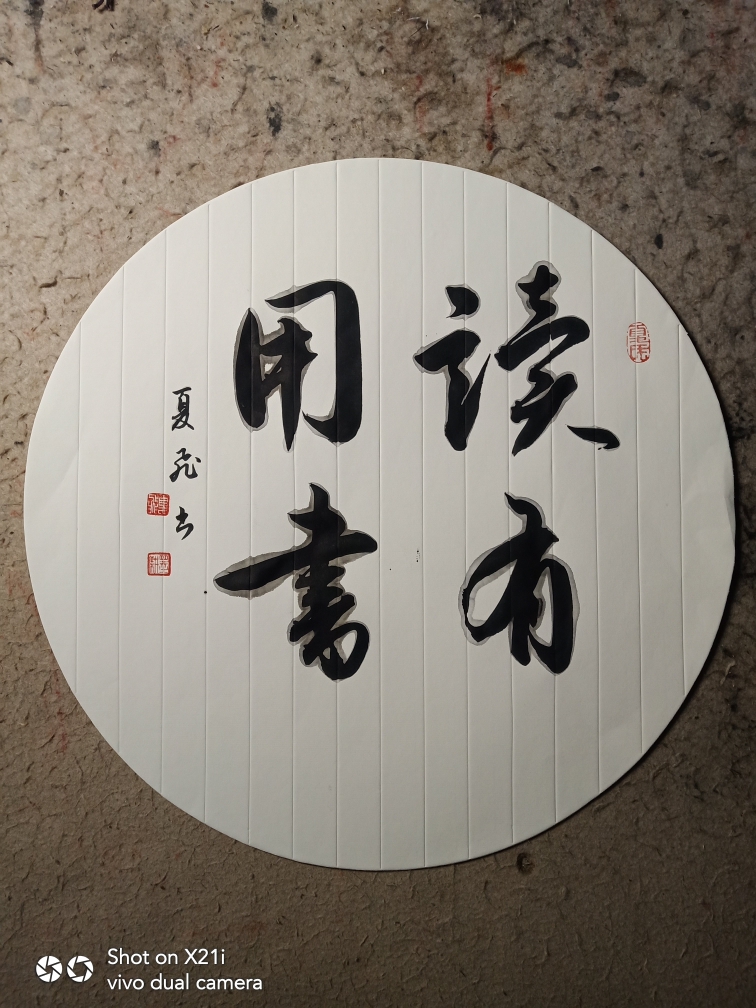 讀有
用書
夏飛書
Shot on X21i
vivo dual camera